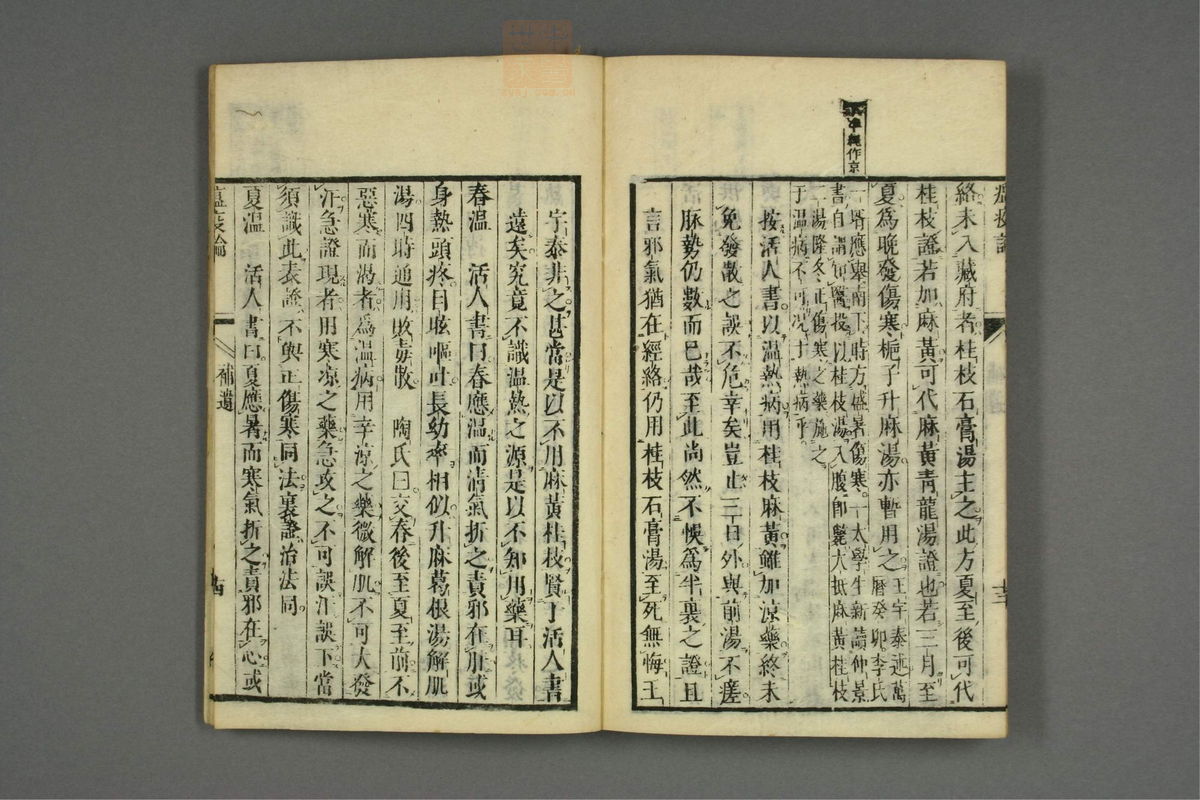 準繩作京
絡未入藏府者桂枝石膏湯主之此方夏至後可代
桂枝證若加麻黃可代麻黃青龍湯證也若三月至
夏爲晚發傷寒梔子升麻湯亦暫用之王宇泰述萬
曆癸卯李氏
一壻應舉南下時方盛暑傷寒一太學生新讀仲景
書自謂知醫投以桂枝湯入腹卽斃大抵麻黃桂枝
二湯隆冬正傷寒之藥施之
于溫病不可況于熱病乎
按活人書以溫熱病用桂枝麻黃雖加涼藥終未
免發散之誤不危幸矣豈止三日外與前湯不瘥
脉勢仍數而已哉至此尚然不悞爲半裏之證且
言邪氣猶在經絡仍用桂枝石膏湯至死無悔王
宇泰非之甚當是以不用麻黃桂枝賢于活人書
遠矣究竟不識溫熱之源是以不知用藥耳
春溫 活人書曰春應溫而清氣折之責邪在肝或
身熱頭疼目眩嘔吐長幼率相似升麻葛根湯解肌
湯四時通用敗毒散 陶氏曰交春後至夏至前不
惡寒而渴者爲溫病用辛涼之藥微解肌不可大發
汗急證現者用寒涼之藥急攻之不可誤汗誤下當
須識此表證不與正傷寒同法裏證治法同
夏溫 活人書曰夏應暑而寒氣折之責邪在心或
瘟疫論 補遺